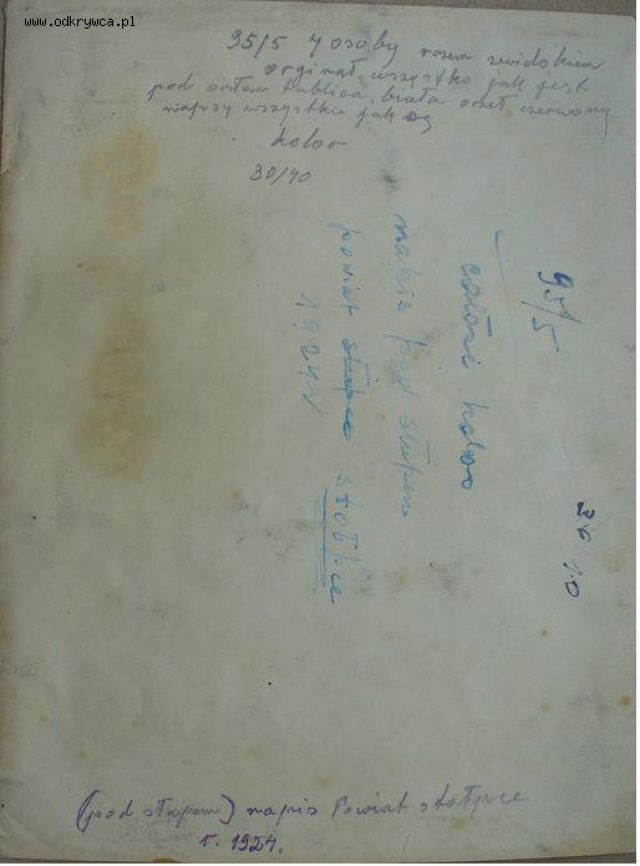 www.odkrywca.pl
95/5 7 osoby rozem zwidokiem
orginał wszystko jak jest
pod orłem tablica biała orzeł czerwony
napisy wszystkie jak są
kolor
30/40
95/5
całośc kolor
napis pod słupem
powiat słupce stołbce
1924 r
30 40
(pod słupem) napis Powiat stołpce
r. 1924.